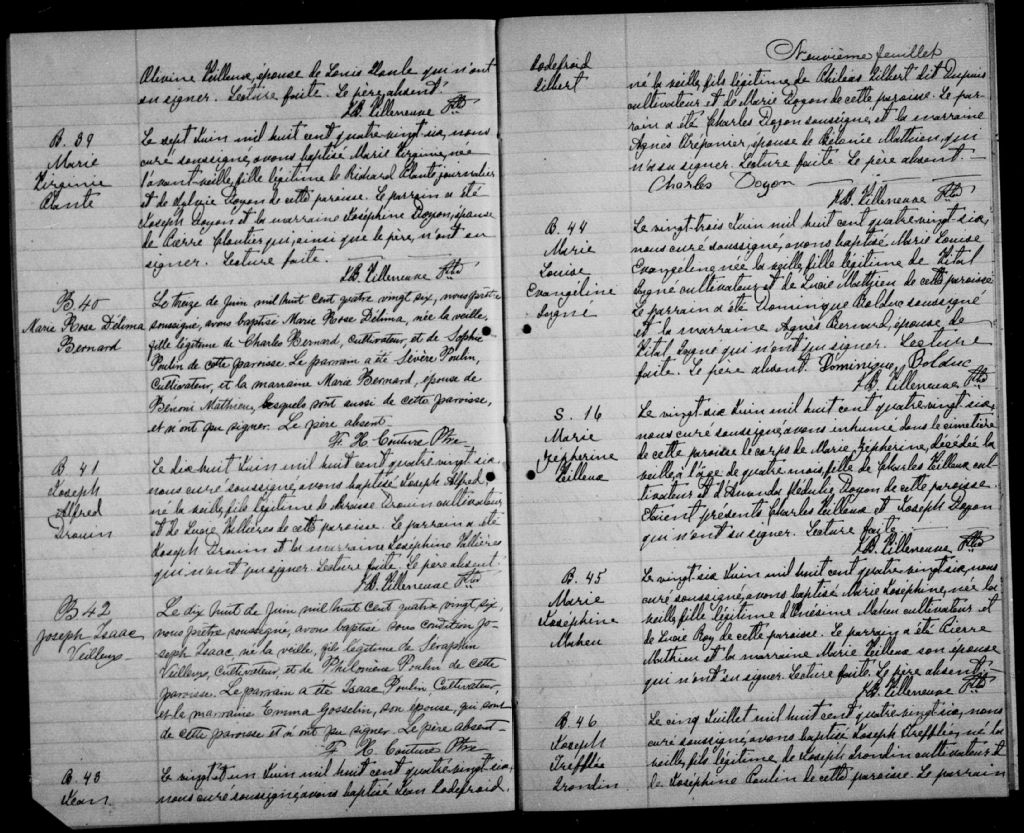 Olivine Veilleux, épouse de Louis Doule qui n'ont
su signer. Lecture faite. Le père absent.
J.B. Villeneuve Ptre
B. 39
Marie
Virginie
Plante
Le sept Juin mil huit cent quatre-vingt-six, nous
curé soussigné, avons baptisé Marie Virginie, née
l'avant-veille, fille légitime de Richard Plante journalier
et de Sylvie Doyon de cette paroisse. Le parrain a été
Joseph Doyon et la marraine Joséphine Doyon, épouse
de Pierre Cloutier qui, ainsi que le père, n'ont su
signer. Lecture faite.
J.B. Villeneuve Ptre
B 40
Marie Rose Délima
Bernard
Le treize de Juin mil huit cent quatre vingt six, nous prêtre
soussigné, avons baptisé Marie Rose Délima, née la veille,
fille légitime de Charles Bernard, Cultivateur, et de Sophie
Poulin de cette paroisse. Le parrain a été Sévère Poulin,
Cultivateur, et la marraine Marie Bernard, épouse de
Bénoni Mathieu, lesquels sont aussi de cette paroisse,
et n'ont pu signer. Le père absent
F. H. Couture Ptre
B. 41
Joseph
Alfred
Drouin
Le dix huit Juin mil huit cent quatre-vingt-six,
nous curé soussigné, avons baptisé Joseph Alfred,
né la veille, fils légitime de Drouin cultivateur
et de Lucie Vallières de cette paroisse. Le parrain a été
Joseph Drouin et la marraine Joséphine Vallières
qui n'ont pu signer. Lecture faite. Le père absent.
J.B. Villeneuve Ptre
B 42
Joseph Isaac
Veilleux
Le dix huit de Juin mil huit cent quatre vingt six,
nous prêtre soussigné, avons baptisé sous condition Jo-
seph Isaac né la veille, fils légitime de Séraphin
Veilleux, Cultivateur, et de Philomène Poulin de cette
paroisse. Le parrain a été Isaac Poulin, Cultivateur,
et la marraine Emma Gosselin, son épouse, qui sont
de cette paroisse et n'ont pu signer. Le père absent
F. H. Couture Ptre
B. 43
Jean
Le vingt et un Juin mil huit cent quatre-vingt-six,
nous curé soussigné, avons baptisé Jean Godefroid,
Neuvième feuillet
Godefroid
Gilbert
né la veille, fils légitime de Philéas Gilbert dit Dupuis
cultivateur et de Marie Doyon de cette paroisse. Le par-
rain a été Charles Doyon soussigné, et la marraine
Agnès Trépanier, épouse de Mathieu, qui
n'a su signer. Lecture faite. Le père absent.
Charles Doyon
J.B. Villeneuve Ptre
B. 44
Marie
Louise
Evangéline
Gagné
Le vingt-trois Juin mil huit cent quatre-vingt-six,
nous curé soussigné, avons baptisé Marie Louise
Evangéline, née la veille, fille légitime de Vital
Gagné cultivateur et de Lucie Mathieu de cette paroisse
Le parrain a été Dominique Bolduc soussigné
et la marraine Agnès Bernard, épouse de
Vital Gagné qui n'ont pu signer. Lecture
faite. Le père absent. Dominique Bolduc
J.B. Villeneuve Ptre
S. 16
Marie
Zépherine
Veilleux
Le vingt-six Juin mil huit cent quatre-vingt-six,
nous curé soussigné, avons inhumé dans le cimetière
de cette paroisse le corps de Marie Zépherine, décédée la
veille, à l'âge de quatre mois, fille de Charles Veilleux cul-
tivateur et d'Amanda Doyon de cette paroisse.
Étaient présents Charles Veilleux et Joseph Doyon
qui n'ont su signer. Lecture faite
J.B. Villeneuve Ptre
B. 45
Marie
Joséphine
Maheu
Le vingt-six Juin mil huit cent quatre-vingt-six, nous
curé soussigné, avons baptisé Marie Joséphine, née la
veille, fille légitime d'Onésime Maheu cultivateur et
de Lucie Roy de cette paroisse. Le parrain a été Pierre
Mathieu et la marraine Marie Veilleux son épouse
qui n'ont su signer. Lecture faite. Le père absent.
J.B. Villeneuve Ptre
B. 46
Joseph
Trefflé
Grondin
Le cinq Juillet mil huit cent quatre-vingt-six, nous
curé soussigné, avons baptisé Joseph Trefflé, né la
veille, fils légitime de Joseph Grondin cultivateur et
de Joséphine Poulin de cette paroisse. Le parrain